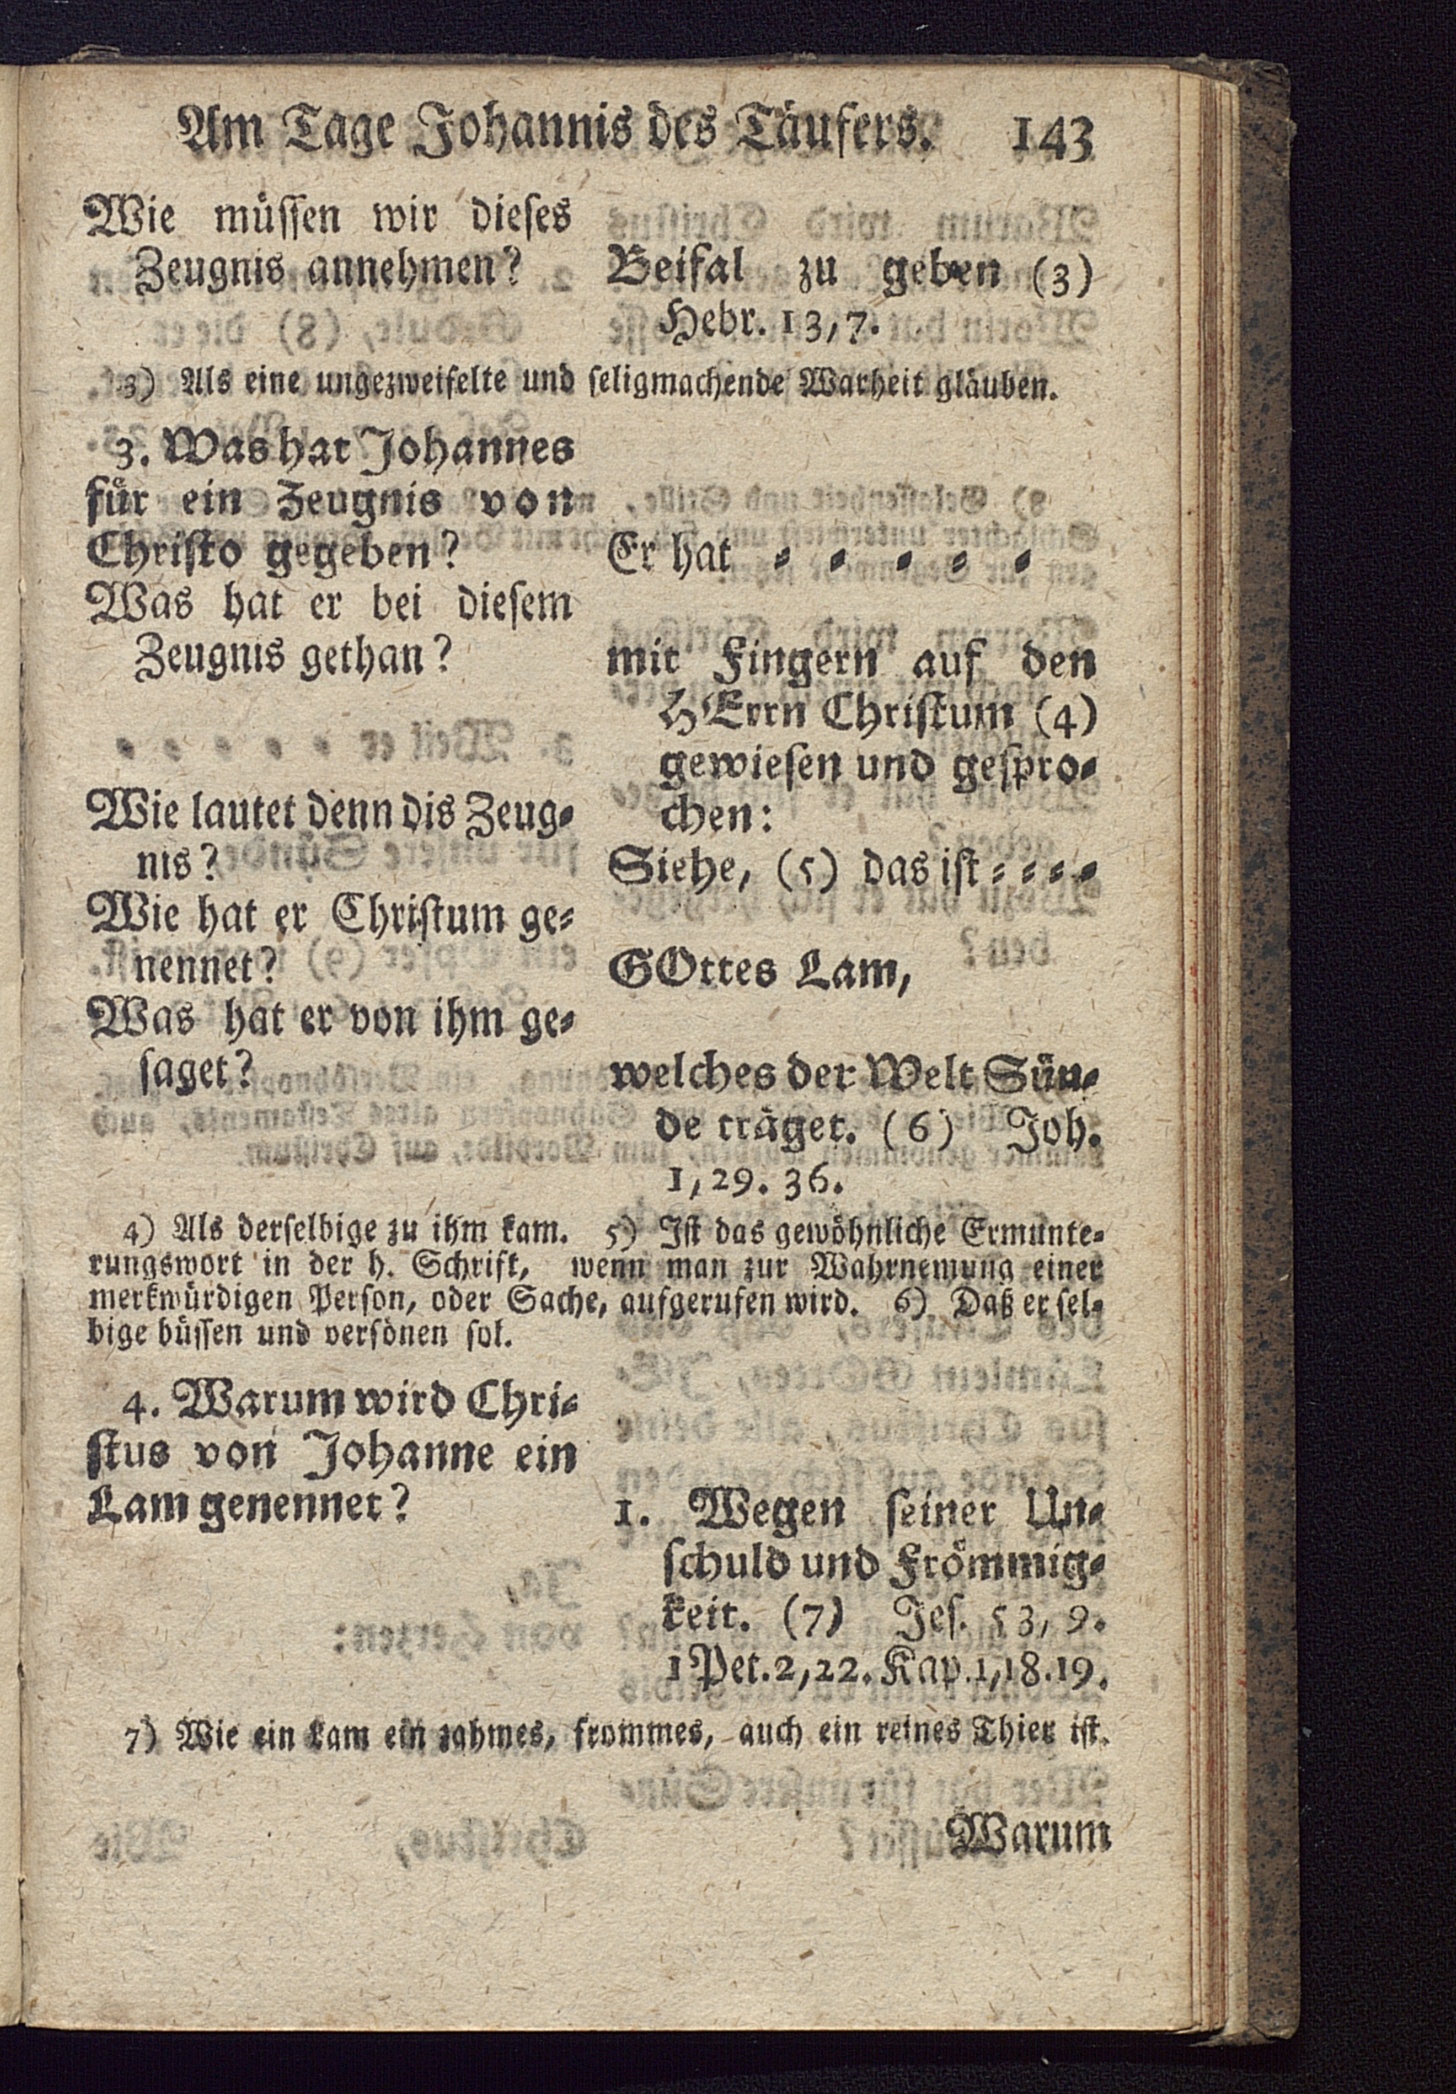 Am Tage Johannis des Täufers. 143
Wie müssen wir dieses
Zeugnis annehmen?
Beifal zu geben (3)
Hebr. 13,7.
3) Als eine ungezweifelte und seligmachende Warheit gläuben.
3. Was hat Johannes
für ein Zeugnis von
Christo gegeben?
Er hat = = = = =
Was hat er bei diesem
Zeugnis gethan?
mit Fingern auf den
HErrn Christum (4)
gewiesen und gespro=
chen:
Wie lautet denn dis Zeug=
nis?
Siehe, (5) das ist = = = =
Wie hat er Christum ge=
nennet?
GOttes Lam,
Was hat er von ihm ge=
saget?
welches der Welt Sün=
de träget. (6) Joh.
1,29. 36.
4) Als derselbige zu ihm kam. 5) Ist das gewöhnliche Ermunte=
rungswort in der h. Schrift, wenn man zur Wahrnemung einer
merkwürdigen Person, oder Sache, aufgerufen wird. 6) Daß er sel=
bige büssen und versönen sol.
4. Warum wird Chri=
stus von Johanne ein
Lam genennet?
1. Wegen seiner Un=
schuld und Frömmig=
keit. (7) Jes. 53, 9.
1 Pet. 2,22. Kap. 1,18.19.
7) Wie ein Lam ein zahmes, frommes, auch ein reines Thier ist.
Warum